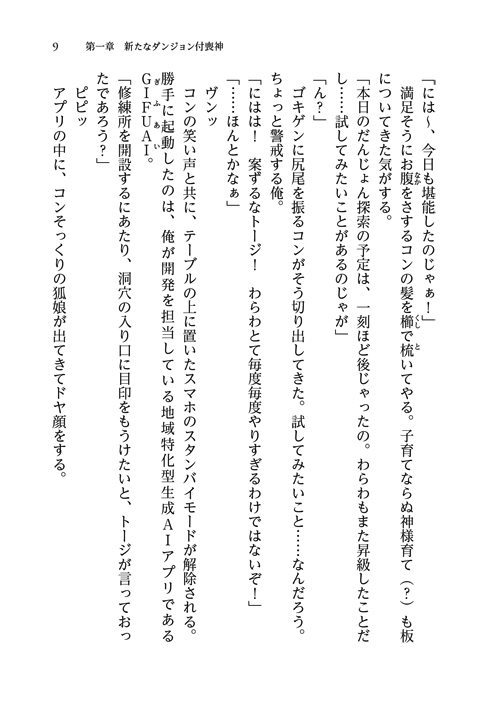 9　第一章　新たなダンジョン付喪神
「には～、今日も堪能したのじゃぁ！」
　満足そうにお腹をさするコンの髪を櫛で梳いてやる。子育てならぬ神様育て（？）も板
についてきた気がする。
「本日のだんじょん探索の予定は、一刻ほど後じゃったの。わらわもまた昇級したことだ
し……試してみたいことがあるのじゃが」
「ん？」
　ゴキゲンに尻尾を振るコンがそう切り出してきた。試してみたいこと……なんだろう。
ちょっと警戒する俺。
「にはは！　案ずるなトージ！　わらわとて毎度毎度やりすぎるわけではないぞ！」
「……ほんとかなぁ」
　ヴンッ
　コンの笑い声と共に、テーブルの上に置いたスマホのスタンバイモードが解除される。
勝手に起動したのは、俺が開発を担当している地域特化型生成ＡＩアプリである
ＧＩＦＵＡＩ。
「修練所を開設するにあたり、洞穴の入り口に目印をもうけたいと、トージが言っておっ
たであろう？」
　ピピッ
　アプリの中に、コンそっくりの狐娘が出てきてドヤ顔をする。